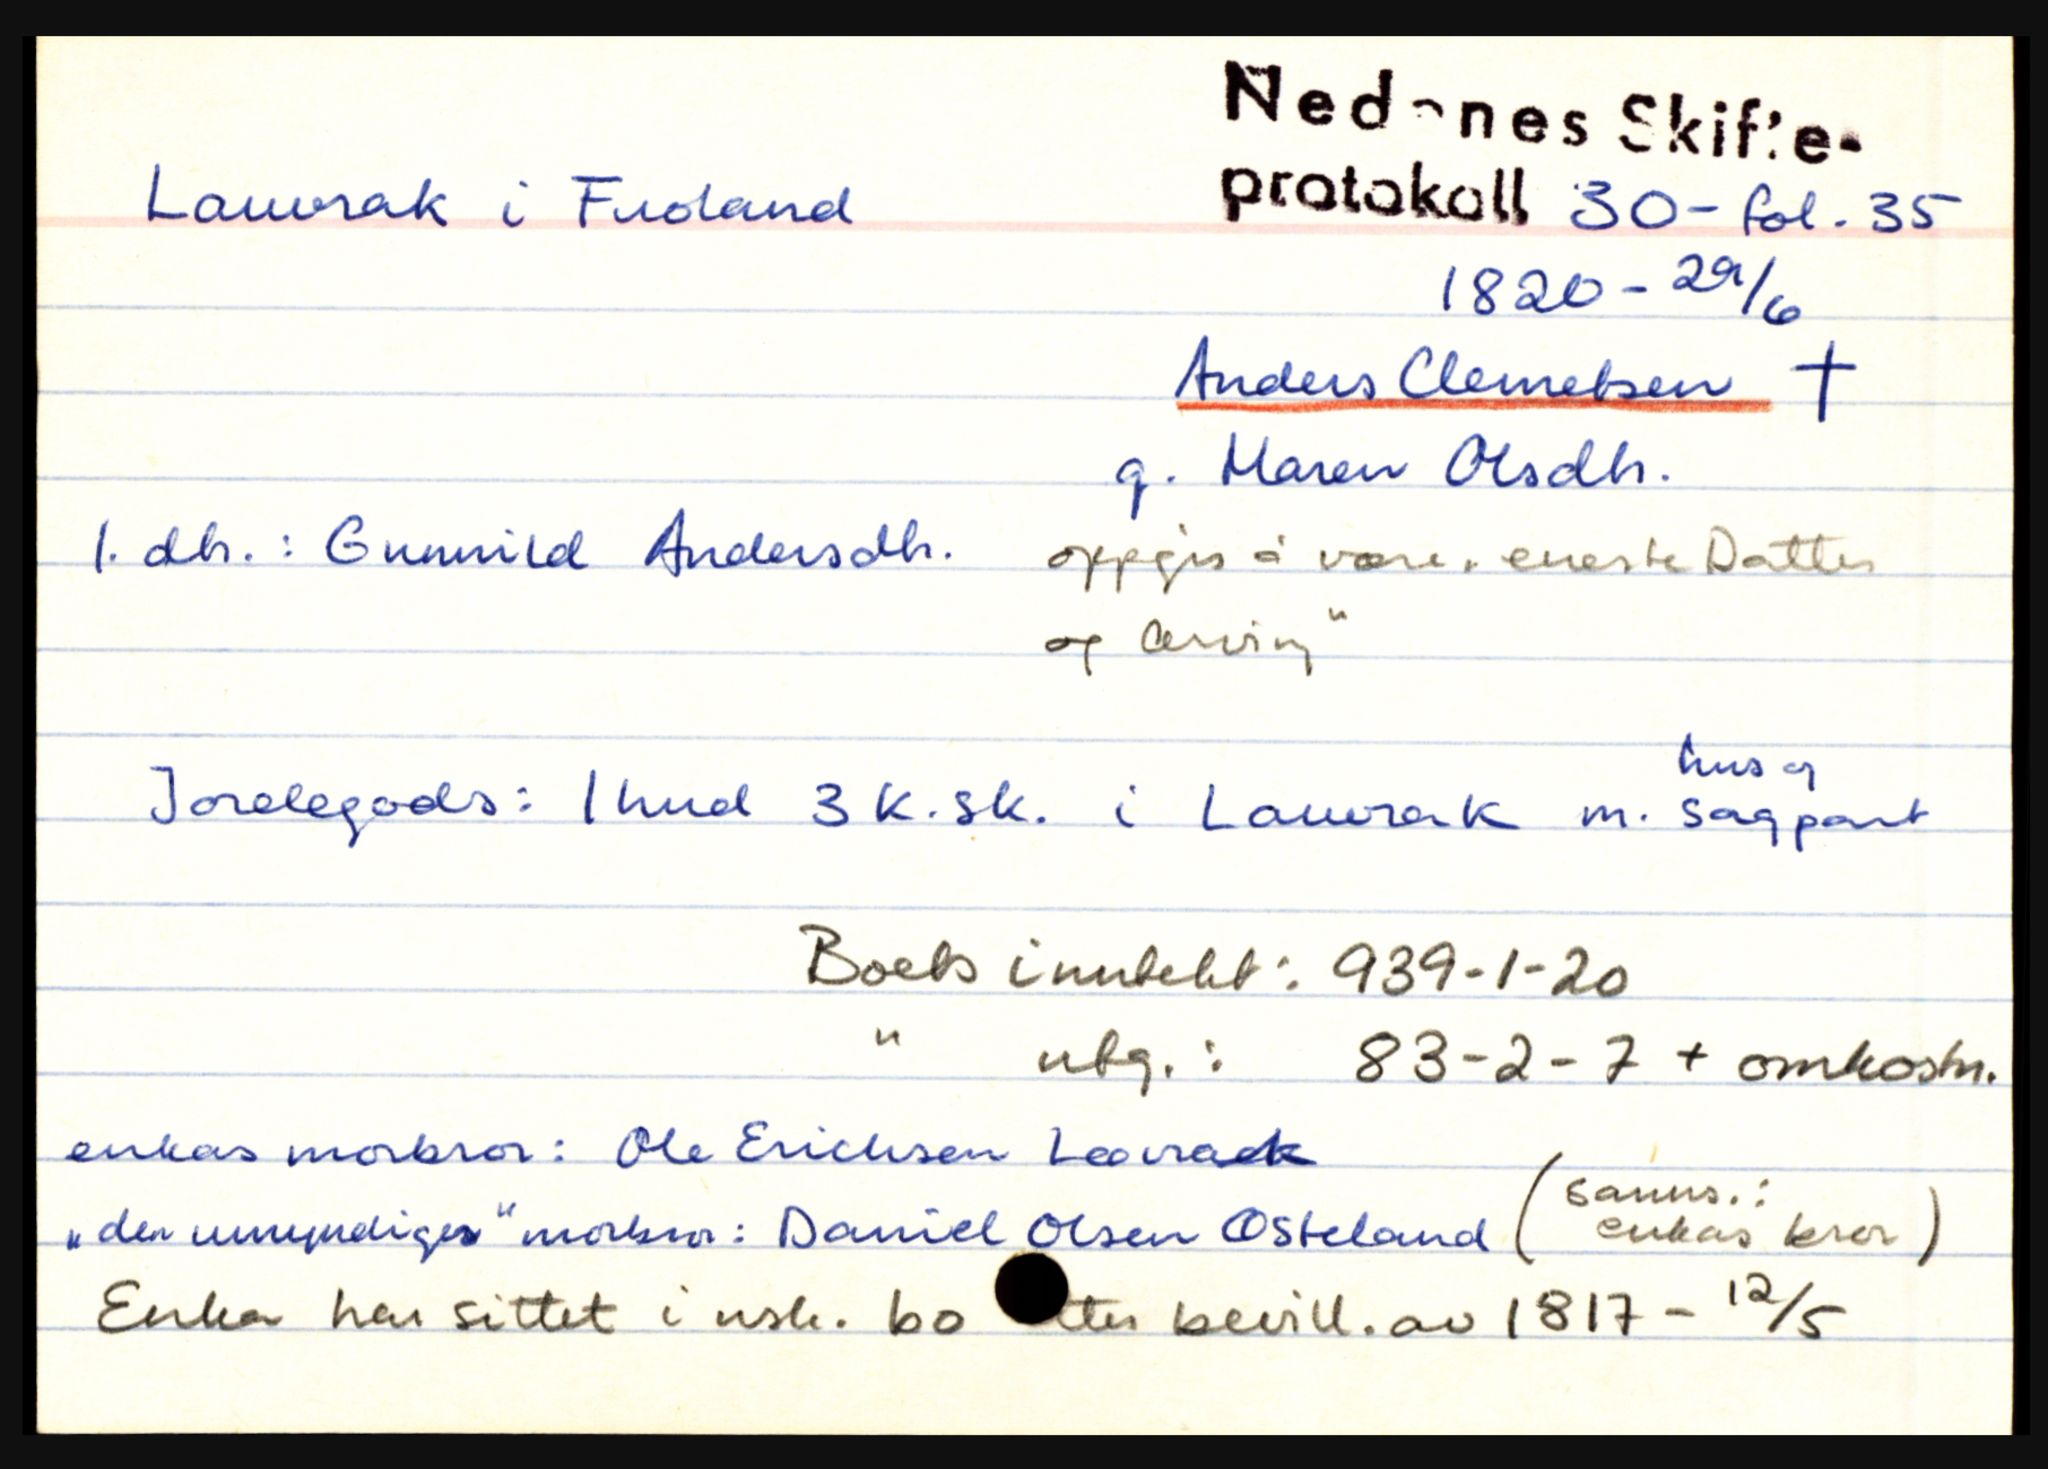 Nedenes Skifte-
protokoll 30 - fol. 35
Lauvrak i Froland
1820 - 29/6
Anders Clemetsen †
g. Maren Olsdtr.
1. dtr.: Gunnild Andersdtr. oppgis å være „eneste Datter
og Arving"
Jordegods: 1 hud 3 k.sk. i Lauvrak m. hus og sagpart
Boets inntekt: 939-1-20
" utg.: 83-2-7 + omkostn.
enkas morbror: Ole Erichsen Lavrack
„den umyndiges" morbror: Daniel Olsen Osteland (sanns.:
enkas bror)
Enka har sittet i usk. bo etter bevill. av 1817 - 12/5